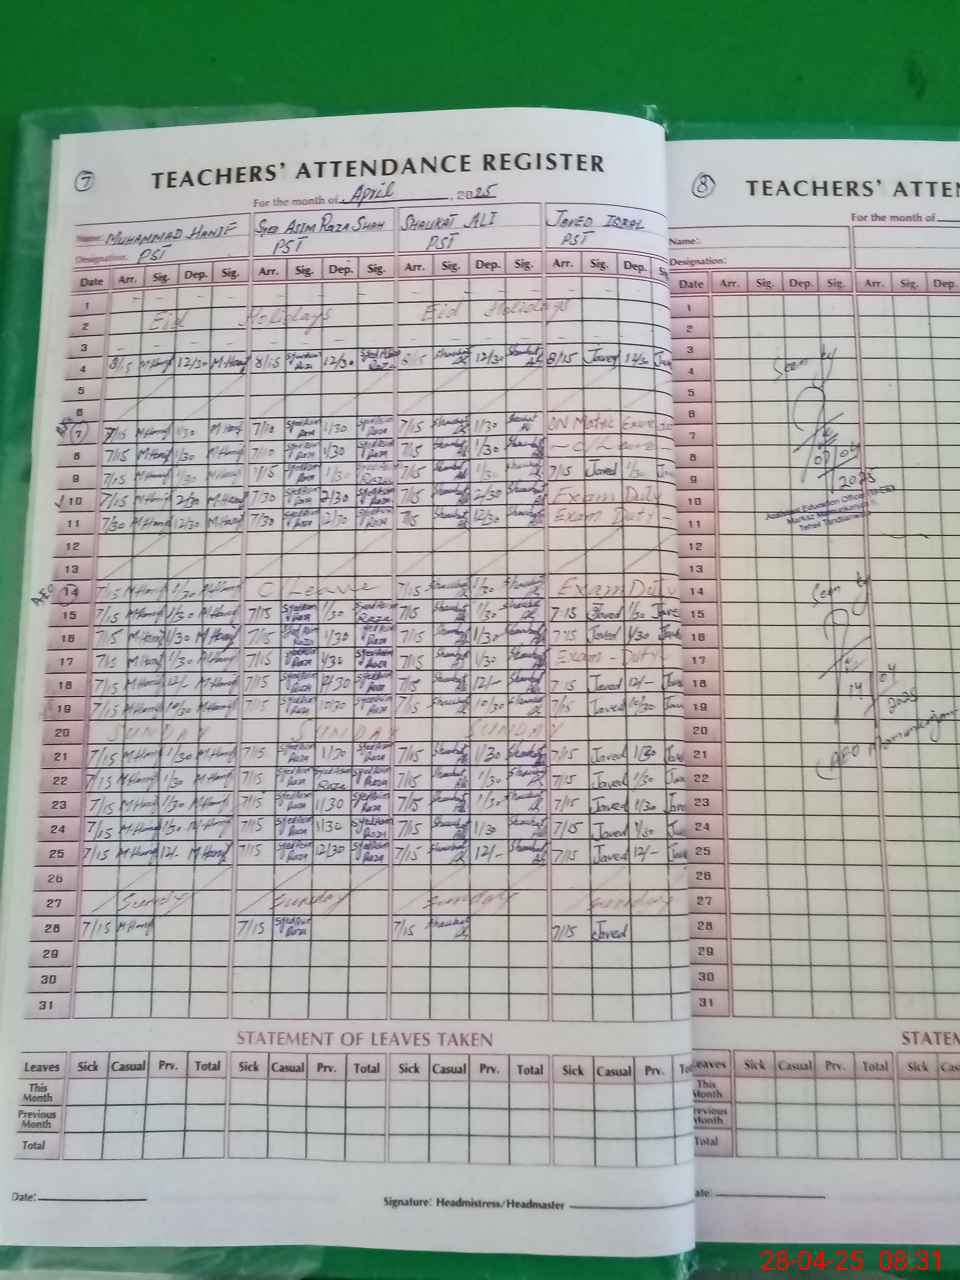 7
TEACHERS' ATTENDANCE REGISTER
For the month of April, 2025
Name: MUHAMMAD HANIF SYED ASIM RAZA SHAH SHAUKAT ALI JAVED IQBAL
Designation: PST PST PST PST
Date Arr. Sig. Dep. Sig. Arr. Sig. Dep. Sig. Arr. Sig. Dep. Sig. Arr. Sig. Dep.
1
2 Eid Holidays Eid Holidays
3
4 8/15 M.Hanif 12/30 M.Hanif 8/15 Syed Asim Raza 12/30 Syed Asim Raza 8/15 Shaukat Ali 12/30 Shaukat Ali 8/15 Javed 12/30
5
6
7 7/15 M.Hanif 1/30 M.Hanif 7/10 Syed Asim Raza 1/30 Syed Asim Raza 7/15 Shaukat Ali 1/30 Shaukat Ali ON Matric
8 7/15 M.Hanif 1/30 M.Hanif 7/10 Syed Asim Raza 1/30 Syed Asim Raza 7/15 Shaukat Ali 1/30 Shaukat Ali C/Leave
9 7/15 M.Hanif 1/30 M.Hanif 7/15 Syed Asim Raza 1/30 Syed Asim Raza 7/15 Shaukat Ali 1/30 Shaukat Ali 7/15 Javed 1/30
10 7/15 M.Hanif 2/30 M.Hanif 7/30 Syed Asim Raza 2/30 Syed Asim Raza 7/15 Shaukat Ali 2/30 Shaukat Ali Exam Duty
11 7/30 M.Hanif 12/30 M.Hanif 7/30 Syed Asim Raza 12/30 Syed Asim Raza 7/15 Shaukat Ali 12/30 Shaukat Ali Exam Duty
12
13
AEO 14 7/15 M.Hanif 1/30 M.Hanif C/Leave 7/15 Shaukat Ali 1/30 Shaukat Ali Exam Duty
15 7/15 M.Hanif 1/30 M.Hanif 7/15 Syed Asim Raza 1/30 Syed Asim Raza 7/15 Shaukat Ali 1/30 Shaukat Ali 7/15 Javed 1/30
16 7/15 M.Hanif 1/30 M.Hanif 7/15 Syed Asim Raza 1/30 Syed Asim Raza 7/15 Shaukat Ali 1/30 Shaukat Ali 7/15 Javed 1/30
17 7/15 M.Hanif 1/30 M.Hanif 7/15 Syed Asim Raza 1/30 Syed Asim Raza 7/15 Shaukat Ali 1/30 Shaukat Ali Exam - Duty
18 7/15 M.Hanif 12/- M.Hanif 7/15 Syed Asim Raza Syed Asim Raza 7/15 Shaukat Ali 12/- Shaukat Ali 7/15 Javed 12/-
19 7/15 M.Hanif 10/30 M.Hanif 7/15 Syed Asim Raza 10/30 Syed Asim Raza 7/15 Shaukat Ali 10/30 Shaukat Ali 7/15 Javed 10/30
20 SUNDAY SUNDAY SUNDAY
21 7/15 M.Hanif 1/30 M.Hanif 7/15 Syed Asim Raza 1/30 Syed Asim Raza 7/15 Shaukat Ali 1/30 Shaukat Ali 7/15 Javed 1/30
22 7/15 M.Hanif 1/30 M.Hanif 7/15 Syed Asim Raza Syed Asim Raza Syed Asim Raza 7/15 Shaukat Ali 1/30 Shaukat Ali 7/15 Javed 1/30
23 7/15 M.Hanif 1/30 M.Hanif 7/15 Syed Asim Raza 1/30 Syed Asim Raza 7/15 Shaukat Ali 1/30 Shaukat Ali 7/15 Javed 1/30
24 7/15 M.Hanif 1/30 M.Hanif 7/15 Syed Asim Raza 1/30 Syed Asim Raza 7/15 Shaukat Ali 1/30 Shaukat Ali 7/15 Javed 1/30
25 7/15 M.Hanif 12/- M.Hanif 7/15 Syed Asim Raza 12/30 Syed Asim Raza 7/15 Shaukat Ali 12/- Shaukat Ali 7/15 Javed 12/-
26
27 Sunday Sunday Sunday Sunday
28 7/15 M.Hanif 7/15 Syed Asim Raza 7/15 Shaukat Ali 7/15 Javed
29
30
31
STATEMENT OF LEAVES TAKEN
Leaves Sick Casual Prv. Total Sick Casual Prv. Total Sick Casual Prv. Total Sick Casual Prv.
This Month
Previous Month
Total
Date:
Signature: Headmistress/Headmaster
8
TEACHERS' ATTEN
For the month of
Name:
Designation:
Date Arr. Sig. Dep. Sig. Arr. Sig. Dep.
1
2
3
4 Seen by
5
6
7
8 07/04
9 2025
10
11 Assistant Education Officer
12
13
14 Seen by
15
16
17
18 14 04
19 2025
20
21 AEO
22
23
24
25
26
27
28
29
30
31
STATEM
Leaves Sick Casual Prv. Total Sick Cas
This Month
Previous Month
Total
Date:
28-04-25 08:31